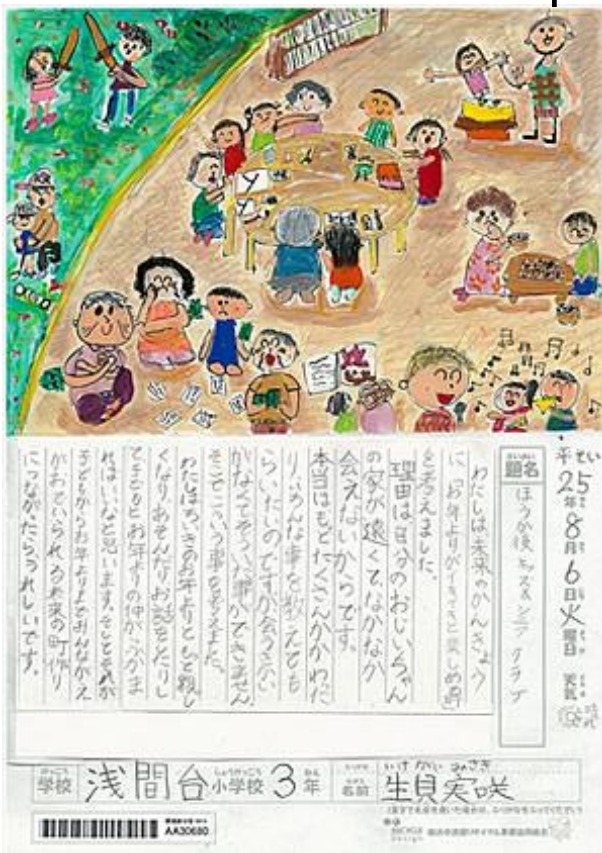 平せい
25年8月6日火曜日 天気
だいめい
題名
ほうか後 キッズ&シニア クラブ
わたしは未来のかんきょう
に「お年よりがいきいきと楽しめ町」
を考えました。
理由は自分のおじいちゃん
の家が遠くてなかなか
会えないからです。
本当はもとたくさんかかわた
り、いろんな事を教えても
らいたいのですが会うきかい
がなくてそういう事ができません。
そこでこういう事を考えました。
わたしはちいきのお年よりともと親し
くなりあそんだりお話をしたりし
て子どもとお年よりの仲がふかま
ればいいなと思います。そしてそれが
子どもからお年よりまでみんながえ
がおでいられる未来の町作り
につながたらうれしいです。
がっこう しょうがっこう ねん
学校 浅間台 小学校 3 年
なまえ いけがい みさき
名前 生貝実咲
AA30680